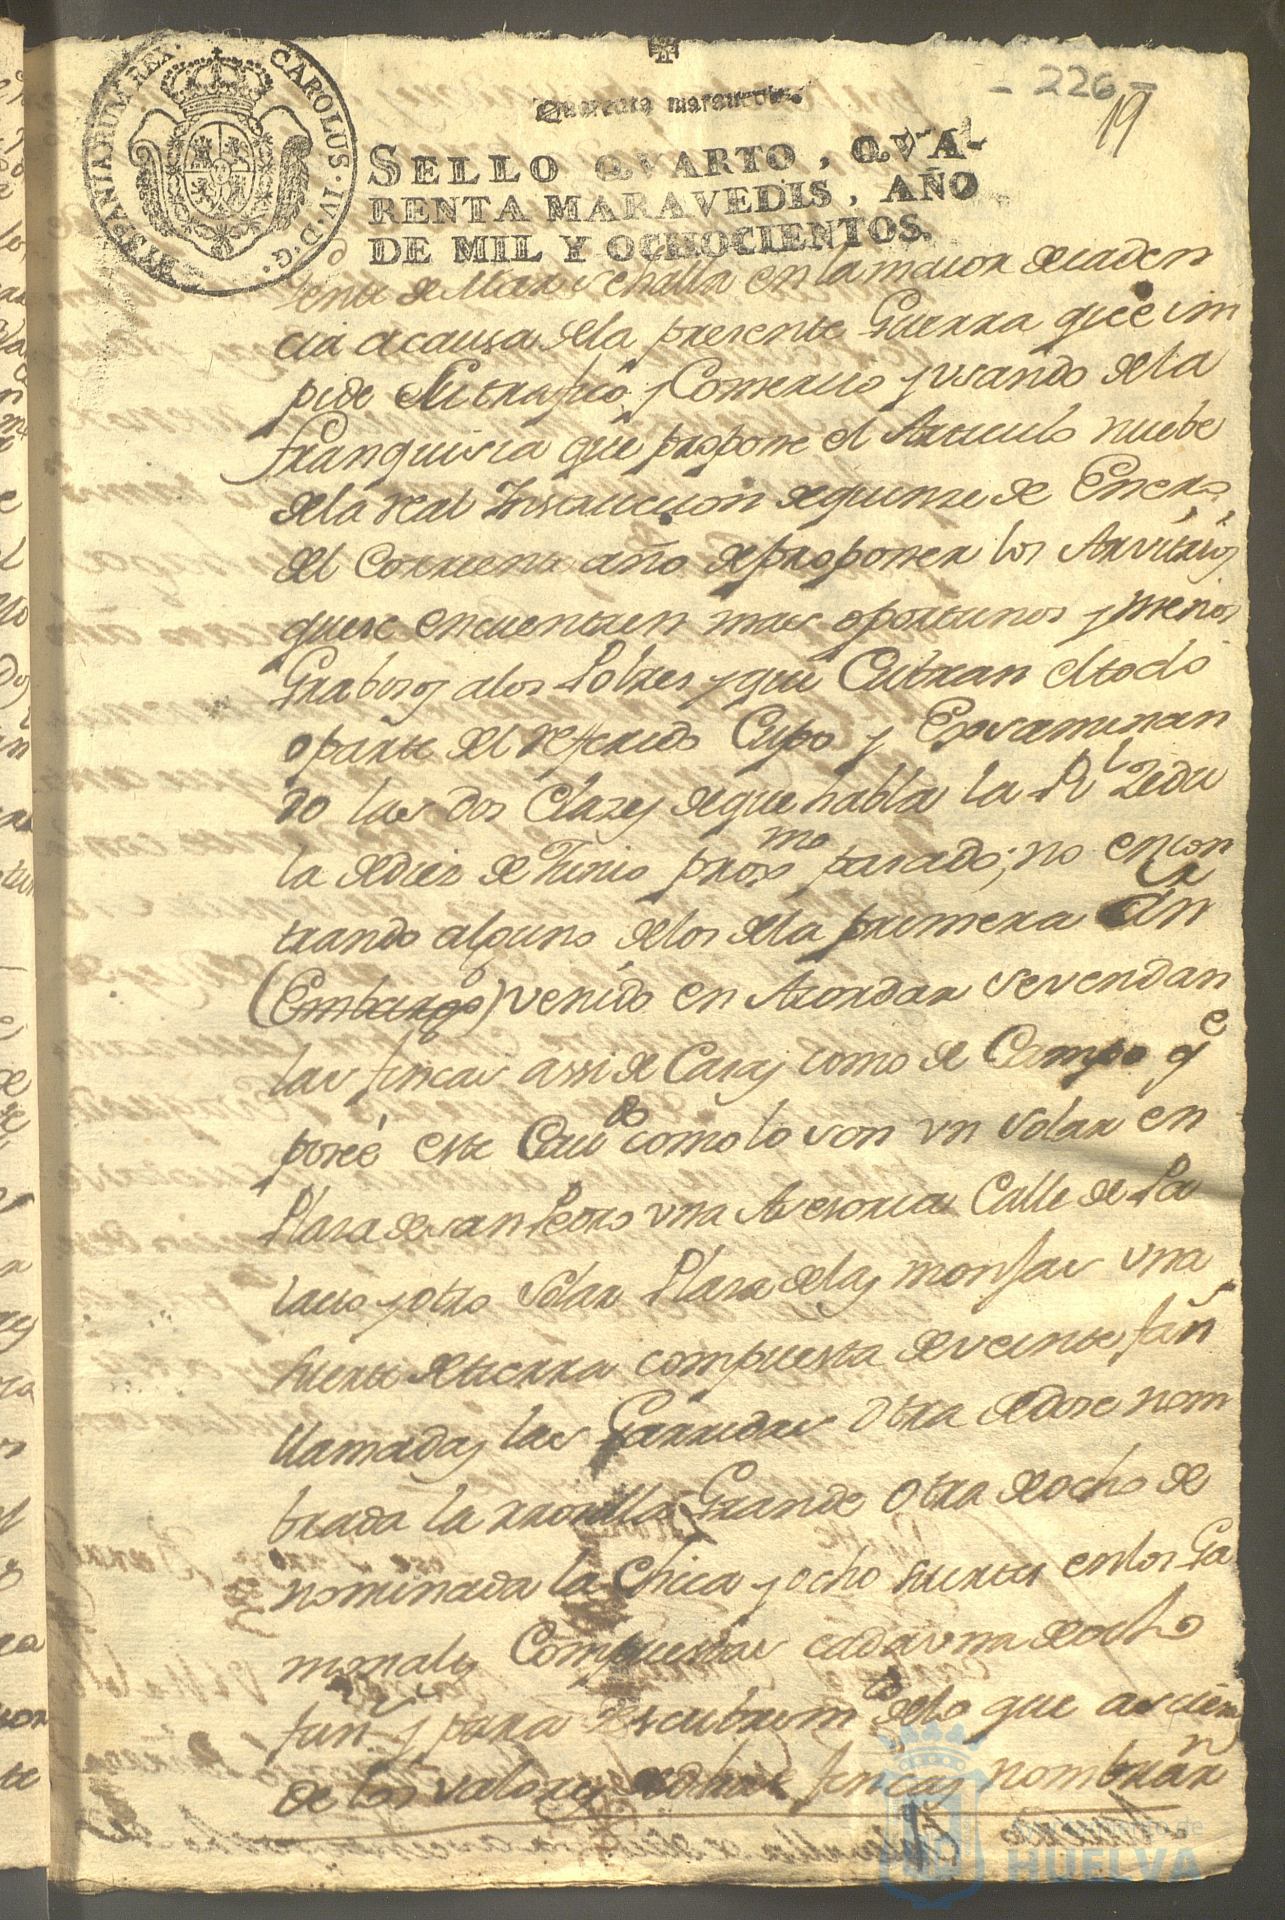 - 226 -
19
HISPANIARUM REX. CAROLUS. IV. D. G.
Quarenta maravedis.
SELLO QVARTO, QVA-
RENTA MARAVEDIS, AÑO
DE MIL Y OCHOCIENTOS.
gente de Mar se halla en la maior decaden
cia a causa dela presente Guerra que im
pide su trafico y Comercio y usando dela
franquisia que propone el Articulo nuebe
dela real Instruccion de quinse de Enero,
del corriente año de proponer los Arvitrios
que se encuentren mas oportunos y menos
Grabosos alos Pobres y que Cubran el todo
o parte del referido Cupo y Exsaminan
do las dos Clazes de que habla la Rl Zedu
la de diez de Junio proxmo pasado; no encon
trando alguno delos dela primera an
(Embargo) venido en Acordar se vendan
las fincas assi de Casas como de Campo qe
poseé este Caudo como lo son un Solar en
Plasa de san Pedro una Asesoria Calle de Pa
lacio y otro Solar Plasa delas monjas una
suerte de tierra compuesta de veinte fan
llamadas las Garridas otra de dose nom
brada la rronilla Grande Otra de ocho de
nominada la Chica y ocho suertes en los Ga
monales Compuestas cada una de ocho
fans y para descubrimto delo que acsien
de los valores de dhas fincas nombran
Ayuntamiento de
HUELVA